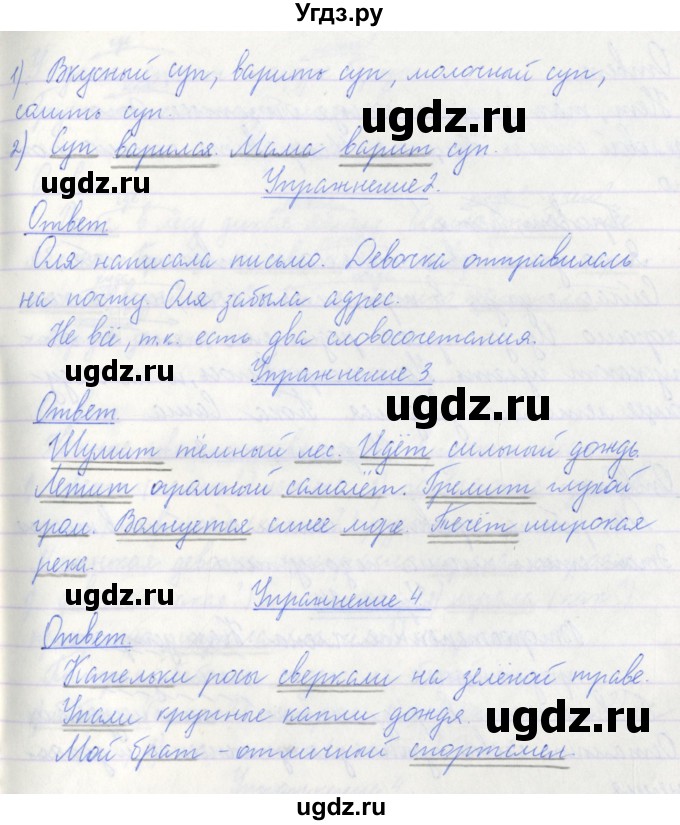 Угдз.ру
1) Вкусный суп, варить суп, молочный суп,
солить суп.
ugdz.ru
2) Суп варился. Мама варит суп.
ugdz.ru
Упражнение 2.
Ответ
Оля написала письмо. Девочка отправилась
на почту. Оля забыла адрес.
Не всё, т.к. есть два словосочетания.
ugdz.ru
Упражнение 3
ugdz.ru
Ответ
Шумит тёмный лес. Идёт сильный дождь.
Летит огромный самолёт. Гремит глухой
гром. Волнуется синее море. Течёт широкая
река.
ugdz.ru
Упражнение 4
Ответ
Капельки росы сверкали на зелёной траве.
Упали крупные капли дождя.
ugdz.ru
Мой брат - отличный спортсмен.
ugdz.ru